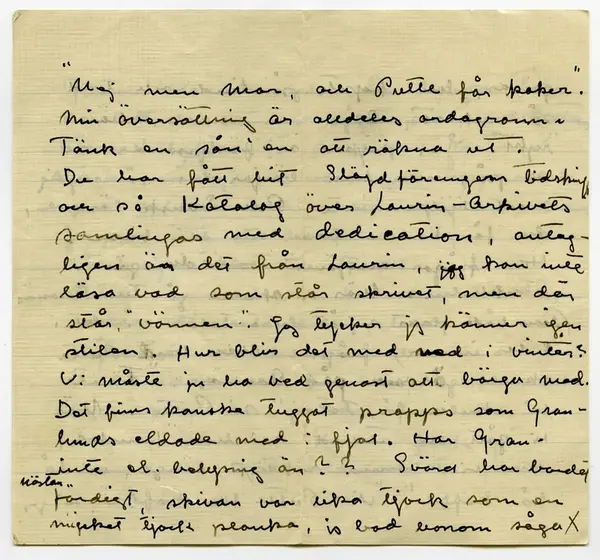 "Nej men Mor, och Putte får kakor".
Min översättning är alldeles ordagrann.
Tänk en sån' en att räkna ut.
Du har fått hit Slöjdföreningens tidskrift
och så Katalog över Laurin-Arkivets
samlingar med dedication, antag-
ligen är det från Laurin, jag kan inte
läsa vad som står skrivet, men där
står "vännen". Jag tycker jag känner igen
stilen. Hur blir det med ved i vinter?
Vi måste ju ha ved genast att börja med.
Det finns kanske tuggat propps som Gran-
lunds eldade med i fjol. Har Gran.
inte el. belysning än?? Svärd har bordet
nästan
färdigt, skivan var lika tjock som en
mycket tjock planka, jag bad honom såga X